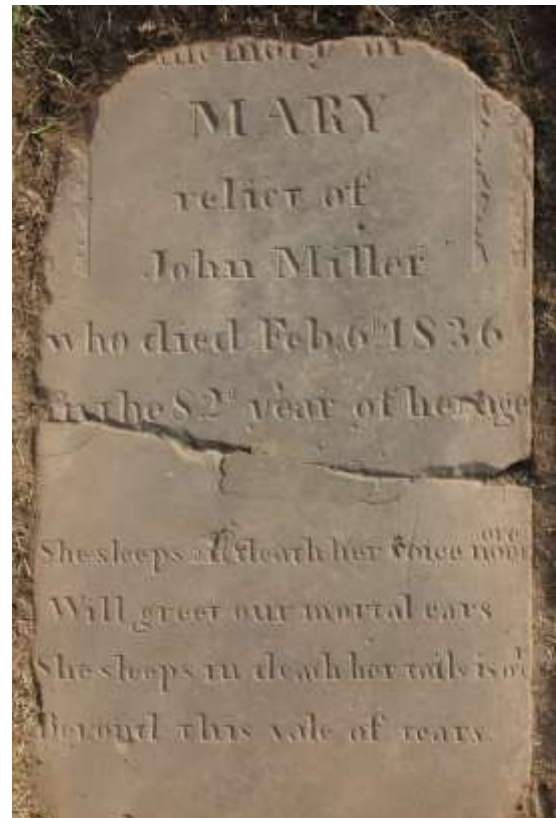 memory of
MARY
relict of
John Miller
who died Feb. 6th 1836
In the 82d year of her age
She sleeps in death her voice no more
Will greet our mortal ears
She sleeps in death her toils is o'er
Beyond this vale of tears.